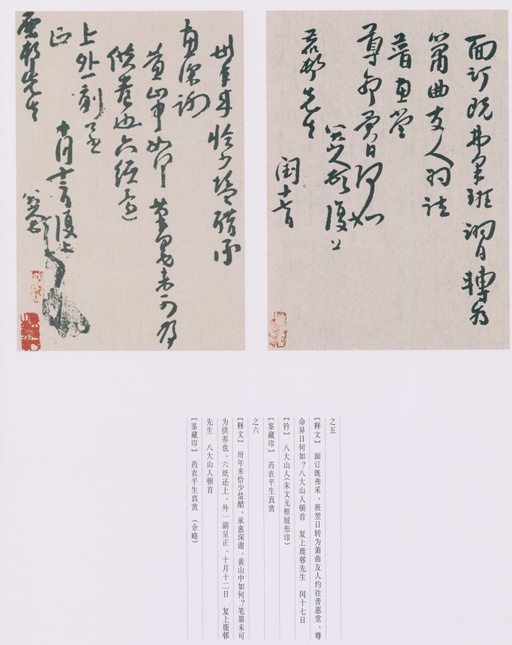 面訂既弗果班翌日轉為
簫曲友人約往
普惠堂
尊命異日何如
八大山人頓首復上
鹿邨先生
閏十七日
卅年来恰少鹽醋承
惠深謝
黄山中如何筆墨未可為
供養也六紙還
上外一副呈
正 十月十二日復上
鹿邨先生
之五
【释文】 面订既弗采，班翌日转为箫曲友人约往普惠堂，尊
命异日何如？八大山人顿首 复上鹿邨先生 闰十七日
【钤】 八大山人(朱文无框屐形印)
【鉴藏印】 药农平生真赏
之六
【释文】 卅年来恰少盐醋，承惠深谢。黄山中如何？笔墨未可
为供养也。六纸还上，外一副呈正。十月十二日 复上鹿邨
先生 八大山人顿首
【鉴藏印】 药农平生真赏 （余略）